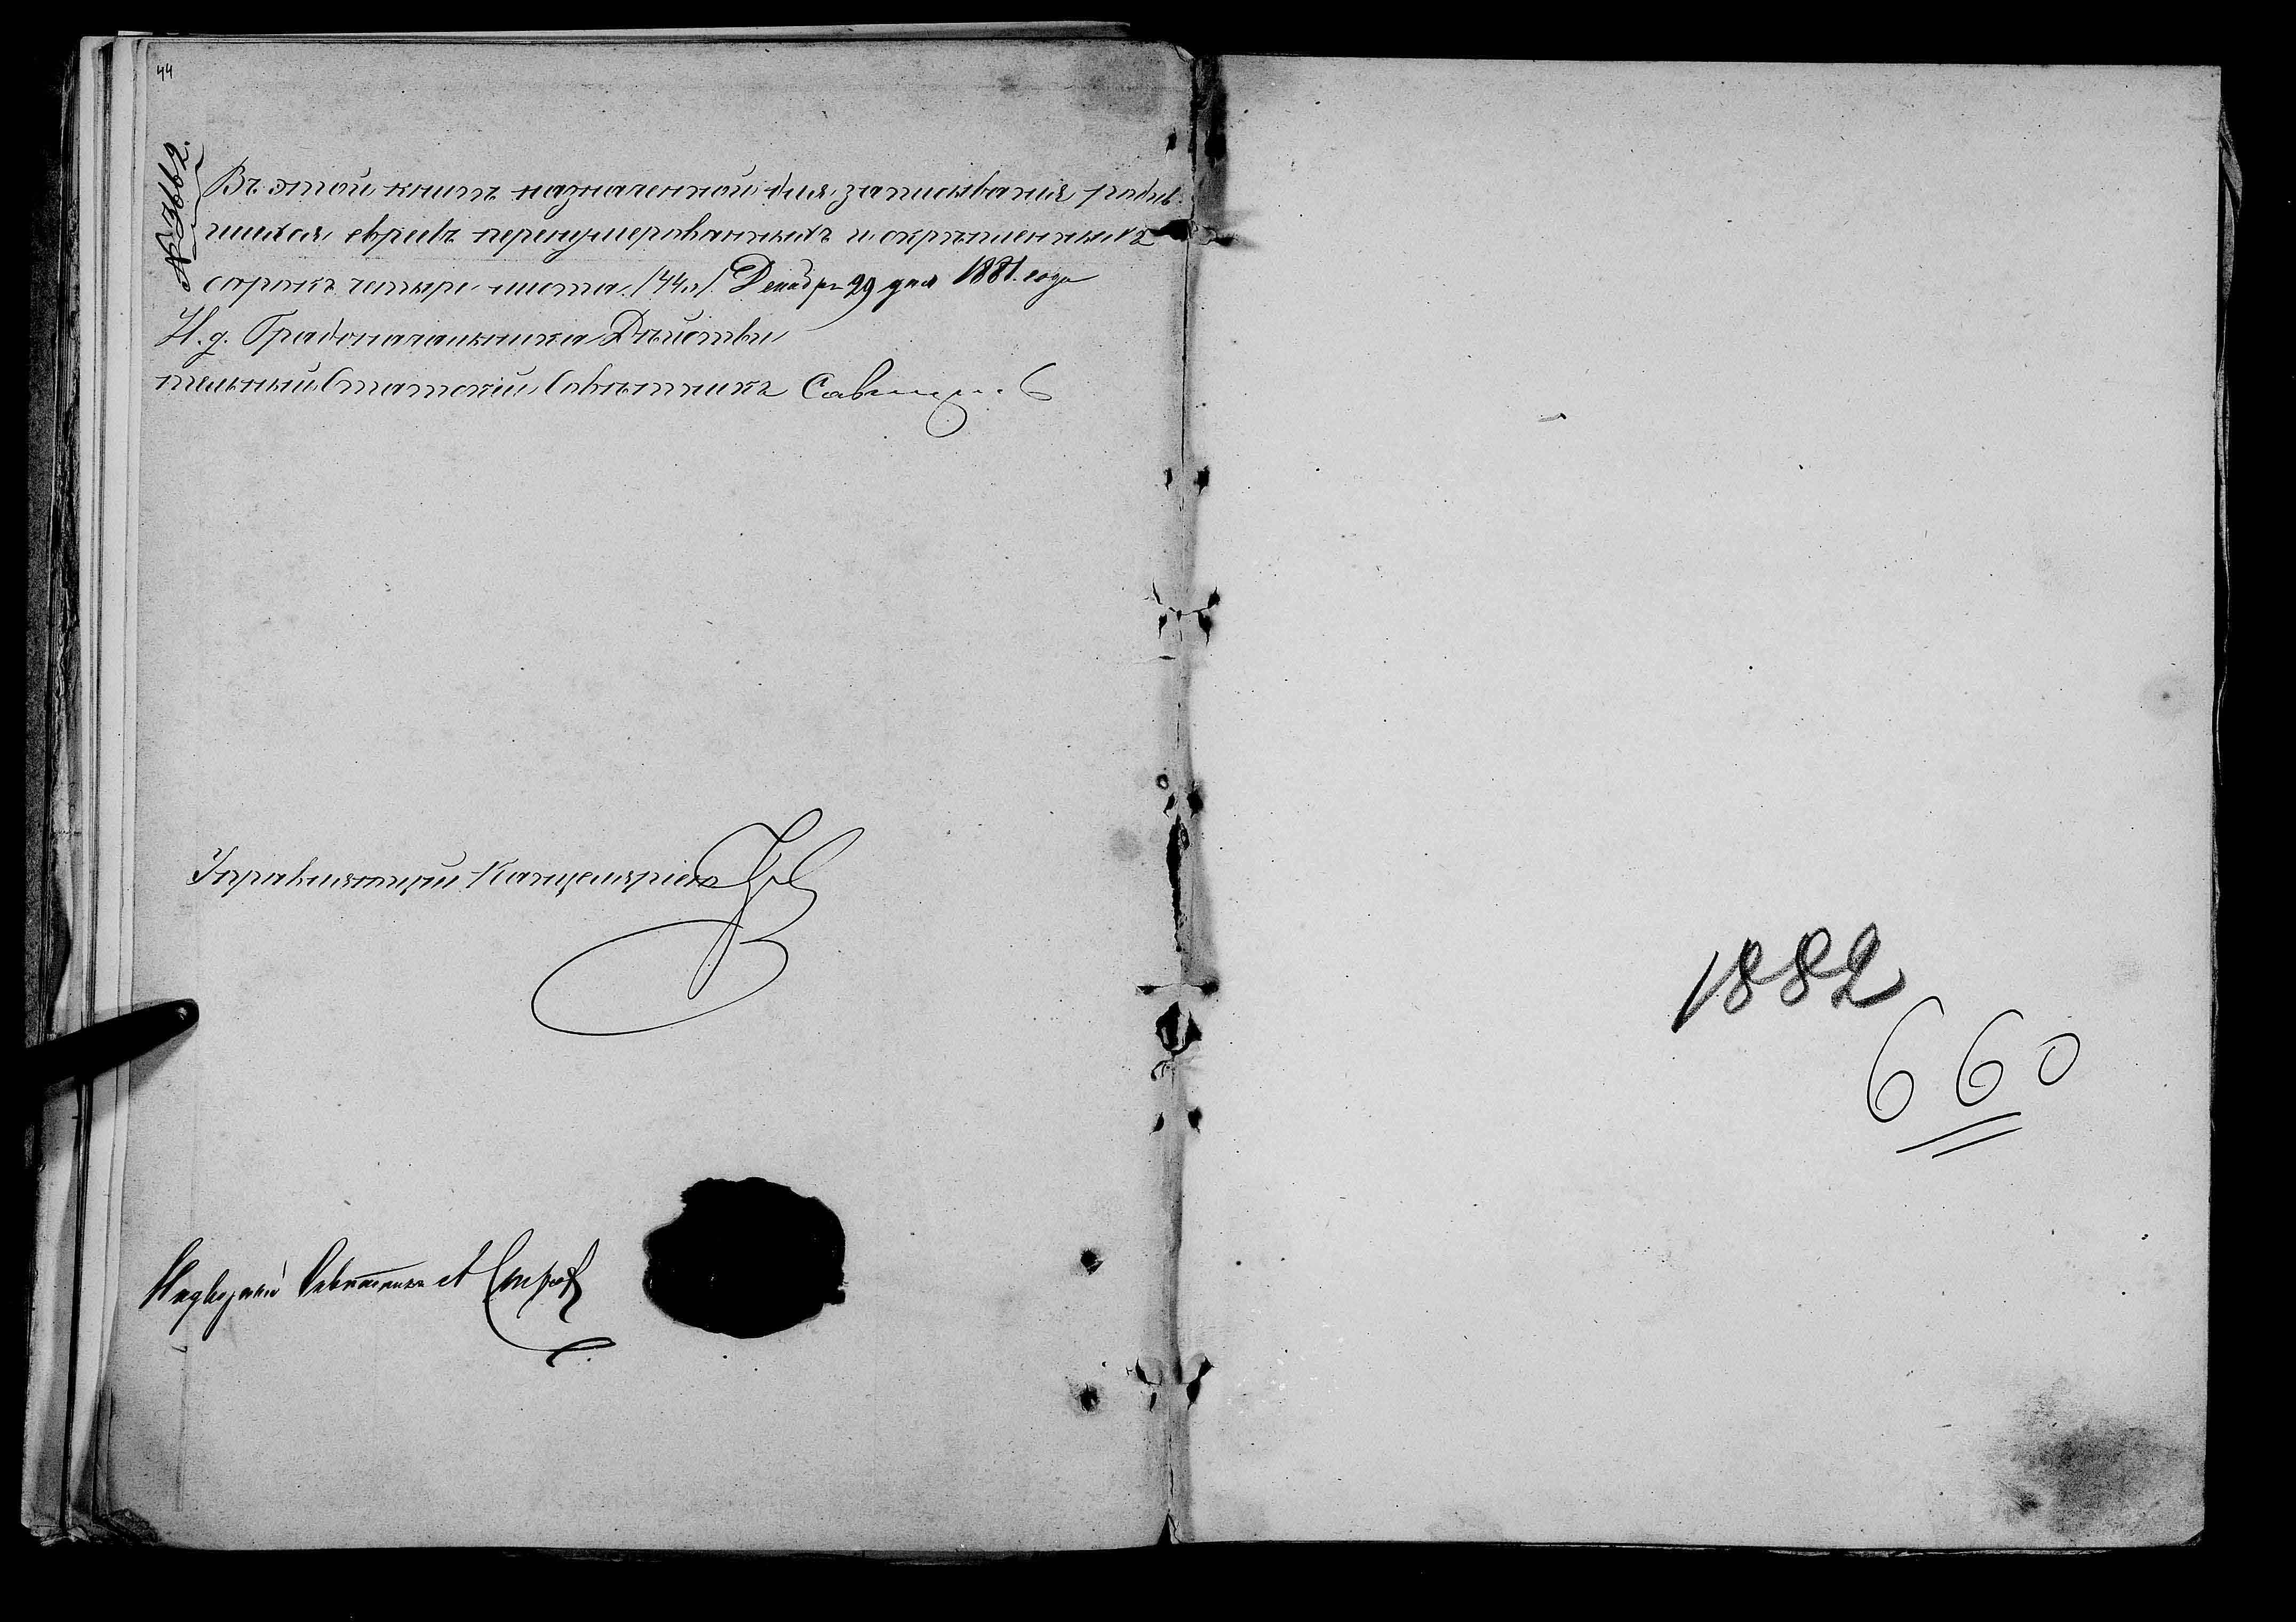 44
№ 3662.
Въ этой книгѣ назначенной для записыванія родив-
шихся евреевъ перенумерованныхъ и скрѣпленныхъ
сорокъ четыре листа /44 л/ Декабря 29 дня 1881 года
И. д. Градоначальника Дѣйстви
тельный Статскій Совѣтникъ
Управляющій Канцеляріею
Надворный Совѣтникъ А
1882
660